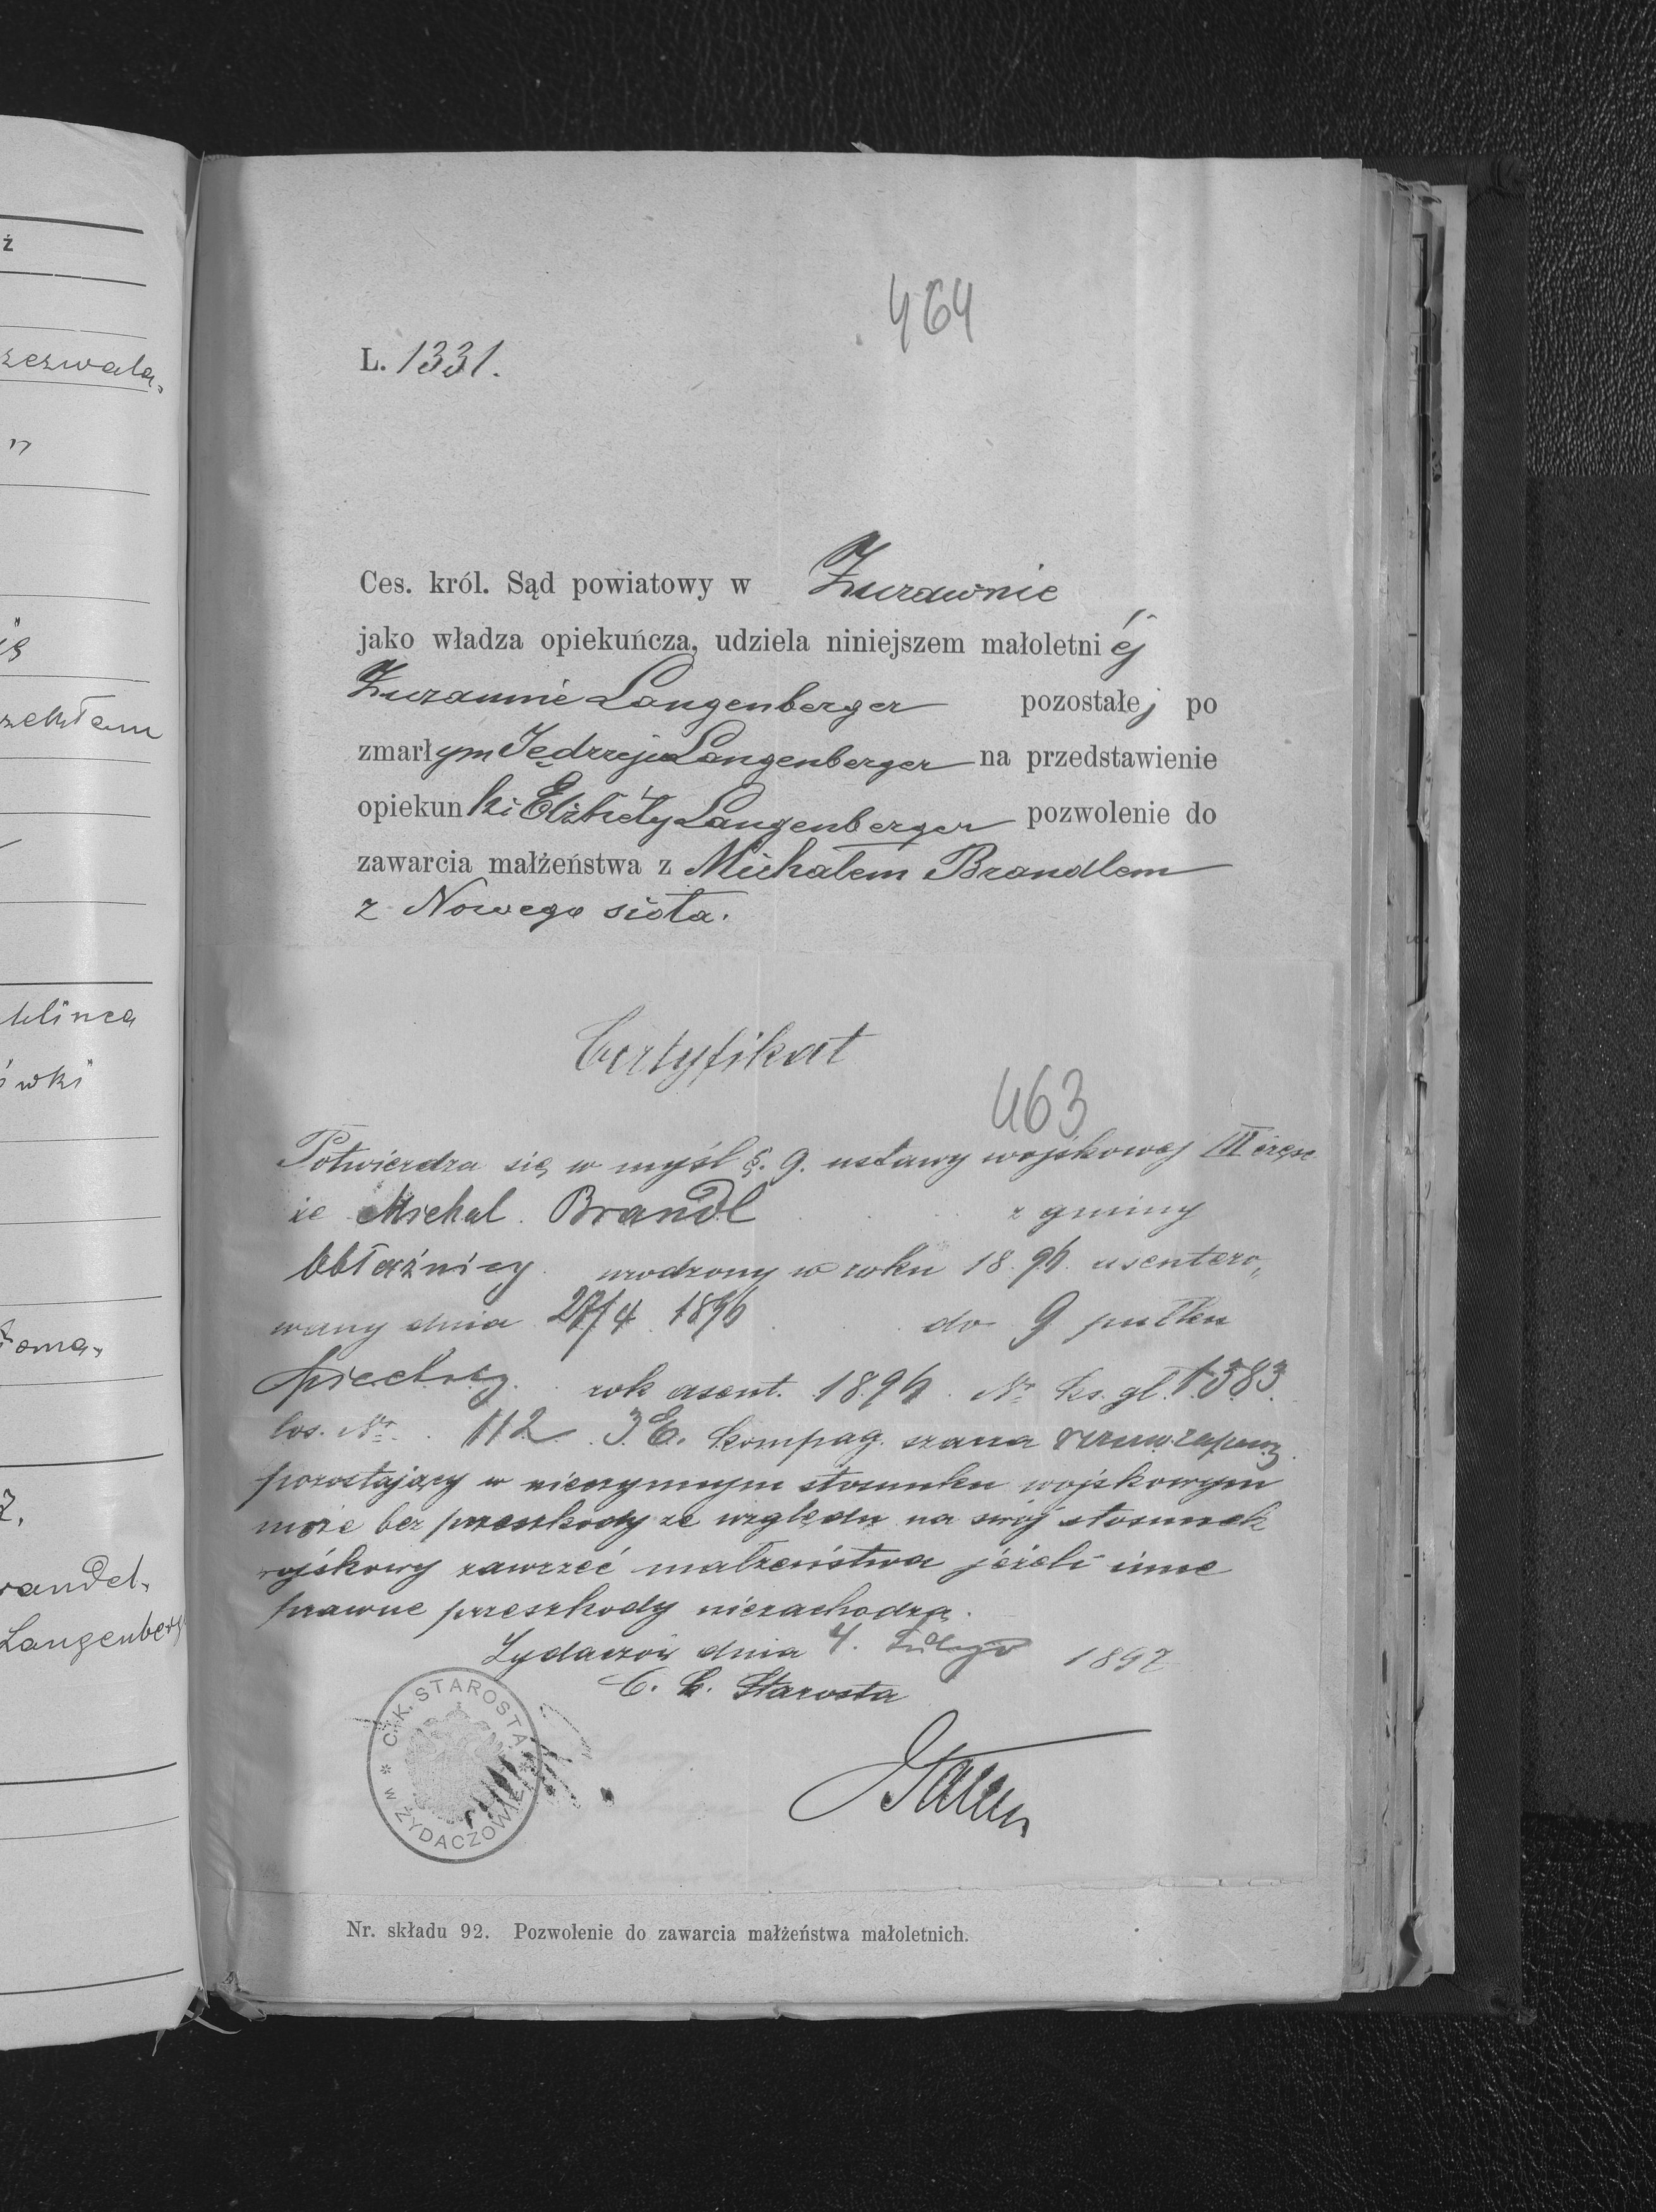 ż
zezwala,
"
zekłam
klinca
ówki
z.
randel,
Langenberg
464
L. 1331.
Ces. król. Sąd powiatowy w Żurawnie
jako władza opiekuńcza, udziela niniejszem małoletniéj
Zuzannie Langenberger pozostałej po
zmarłym Jędrzeju Langenberger na przedstawienie
opiekunki Elżbiéty Langenberger pozwolenie do
zawarcia małżeństwa z Michałem Brandlem
z Nowego sioła.
Certyfikat
463
Potwierdza się w myśl §. 9. ustawy wojskowej III częsc
że Michal Brandl z gminy
Obłaźnicy urodzony w roku 18 asentero„
wany dnia do 9 pułku
piechoty rok asent. Nr ks. gl. 1383.
los. Nr. 112 3 E. kompag. szarza
pozostający w nieczynnym stosunku wojskowym
może bez przeszkody ze względu na swój stosunek
wojskowy zawrzeć małżeństwa jeżeli inne
prawne przeszkody niezachodzą.
Żydaczów dnia 4. Lutego 1897
C. k. Starosta
C. K. STAROSTA * W ŻYDACZOWIE *
Nr. składu 92. Pozwolenie do zawarcia małżeństwa małoletnich.